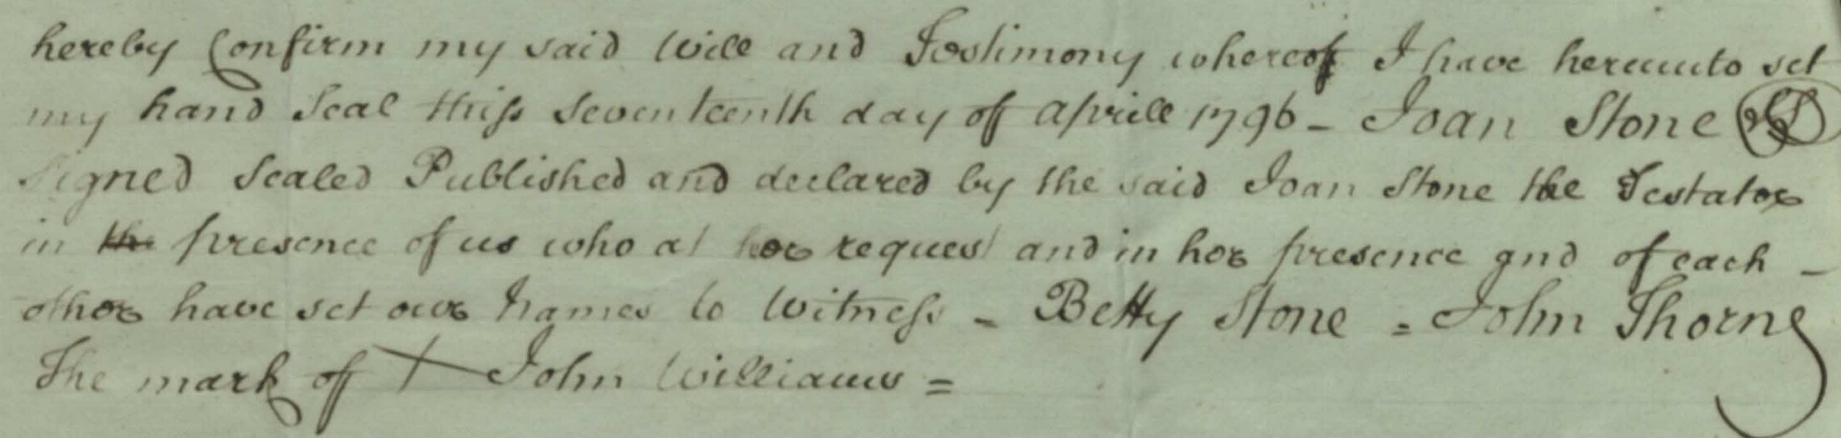 hereby Confirm my said Will and Testimony whereof I have hereunto set
my hand Seal thiss Seventeenth day of Aprill 1796 – Joan Stone LS
Signed Sealed Published and declared by the said Joan Stone the Testator
in the presence of us who at her request and in her presence and of each –
other have set our Names to Witness = Betty Stone = John Thorne
The mark of X John Williams =